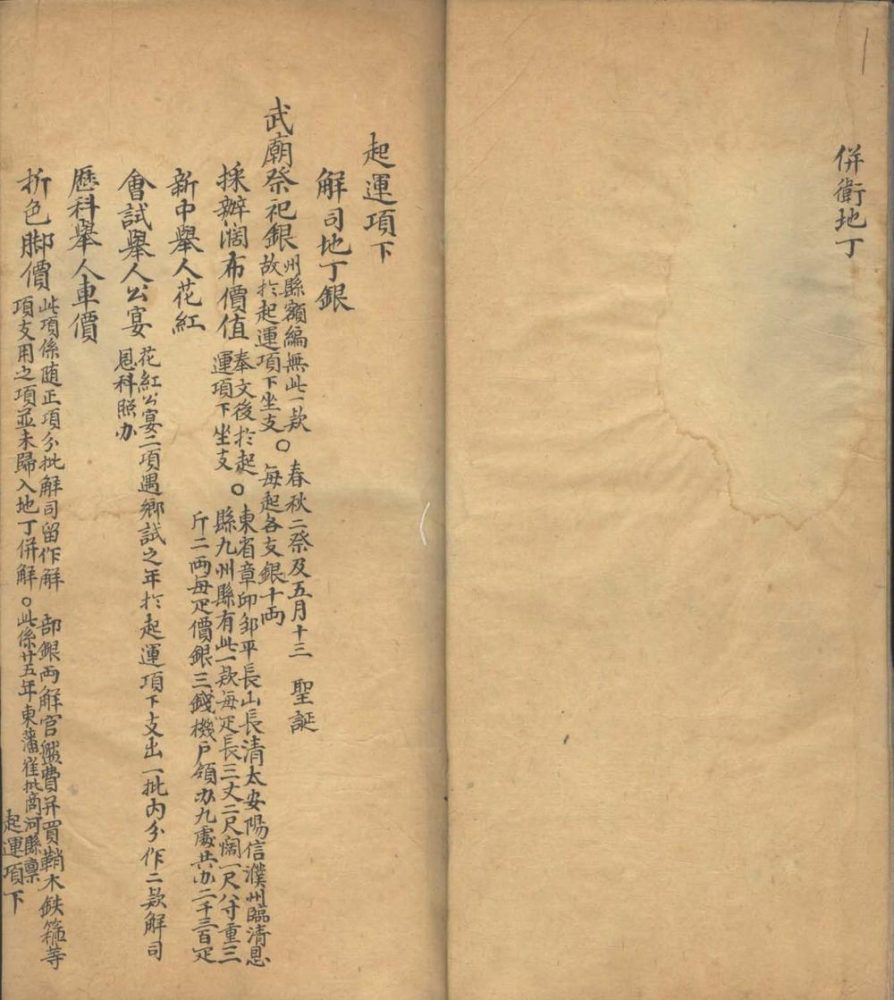 併衛地丁
起運項下
解司地丁銀
武廟祭祀銀
州縣額編無此一款○春秋二祭及五月十三 聖誕
故扵起運項下坐支 每起各支銀十兩
採辦濶布價值
奉文後扵起○東省章邱鄒平長山長清太安陽信濮州臨清恩
運項下坐支 縣九州縣有此一款每疋長三丈二尺濶一尺八寸重三
斤二兩每疋價銀三錢機户領办九處共办二千三百疋
新中舉人花紅
會試舉人公宴
花紅公宴二項遇鄉試之年扵起運項下支出一批内分作二款解司
恩科照办
歷科舉人車價
折色脚價
此項係随正項分批解司留作解 部銀兩解官盤費并買鞘木鉄箍等
項支用之項並未歸入地丁併解○此係廿五年東藩崔批商河縣稟
起運項下